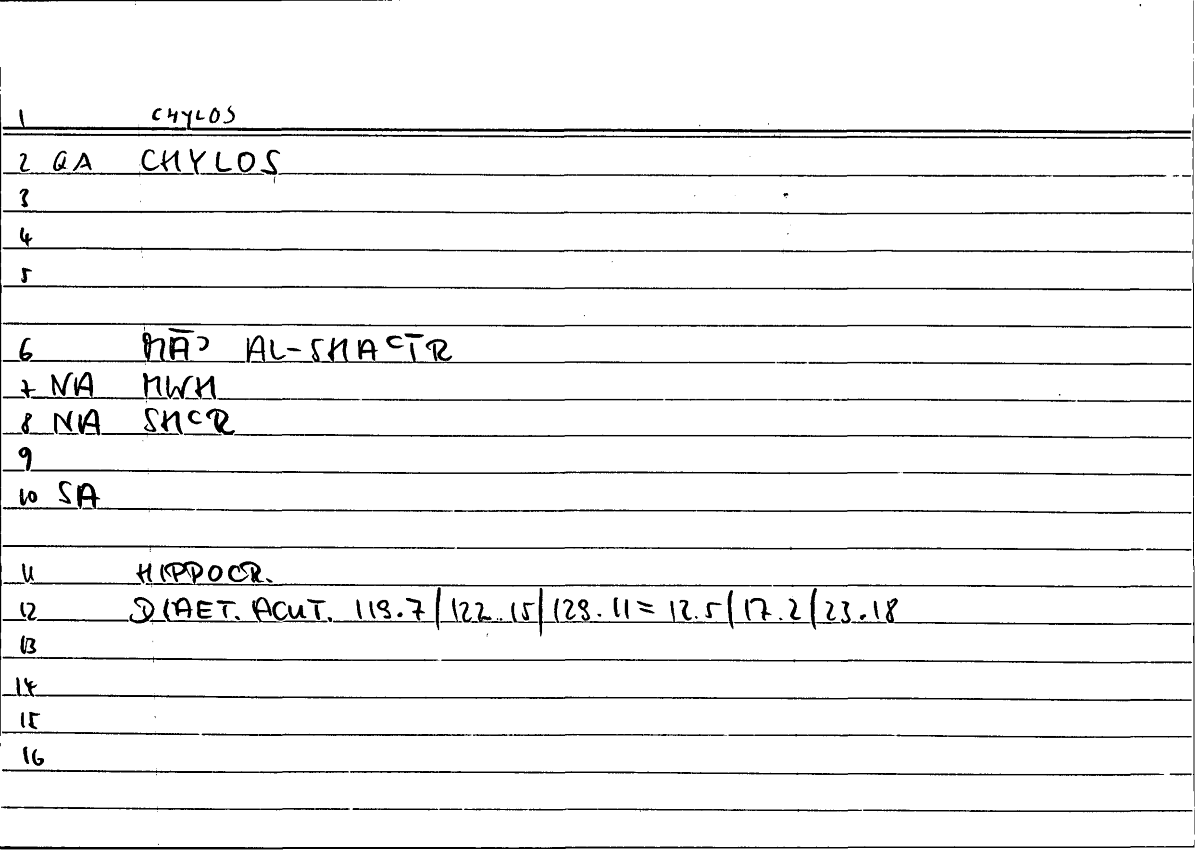 1 CHYLOS
2 QA CHYLOS
3
4
5
6 MĀʾ AL-SHAʿĪR
7 NA MWH
8 NA SHʿR
9
10 SA
11 HIPPOCR.
12 DIAET. ACUT. 119.7 | 122.15 | 129.11 = 12.5 | 17.2 | 23.18
13
14
15
16